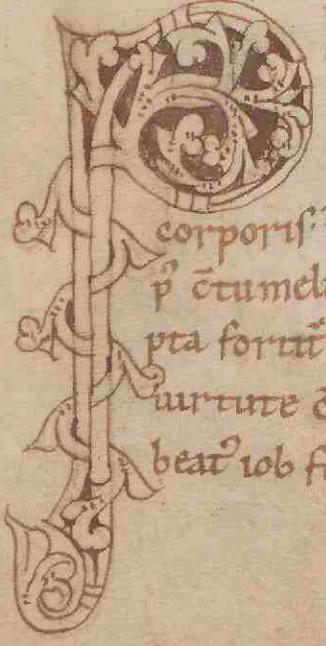 P
corporis
pꝰ c̄tumel
pta fortit̄
uirtute c̄
beatꝰ iob f